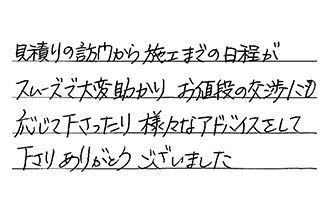 見積りの訪問から施工までの日程が
スムーズで大変助かり お値段の交渉にも
応じて下さったり 様々なアドバイスをして
下さり ありがとうございました